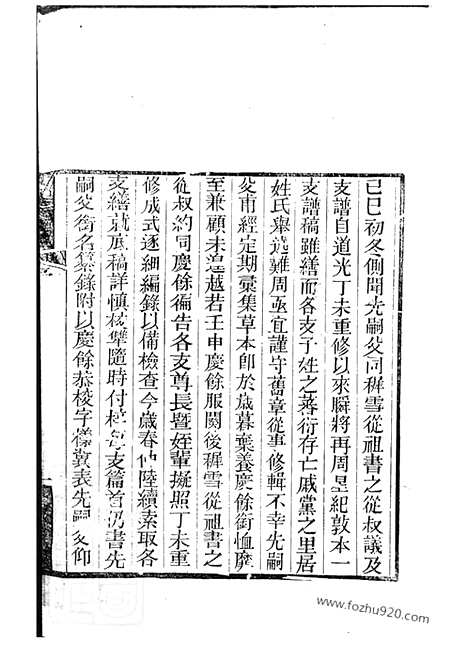 己巳初冬側聞先嗣父同穉雪從祖書之從叔議及
支譜自道光丁未重修以來瞬將再周星紀敦本一
支譜稿雖繕而各支子姓之蕃衍存亡戚黨之里居
姓氏舉遠難周亟宜謹守舊章從事修輯不幸先嗣
父甫經定期彙集草本卽於歲暮棄養慶餘銜恤靡
至兼顧未遑越若壬申慶餘服闋後穉雪從祖書之
從叔約同慶餘徧告各支尊長曁姪輩擬照丁未重
修成式逐細編錄以備檢查今歲春仲陸續索取各
支繕就底稿詳愼校讐隨時付梓 支篇首仍書先
嗣父銜名纂錄附以慶餘恭校字樣冀表先嗣父仰
www.fozhu920.com